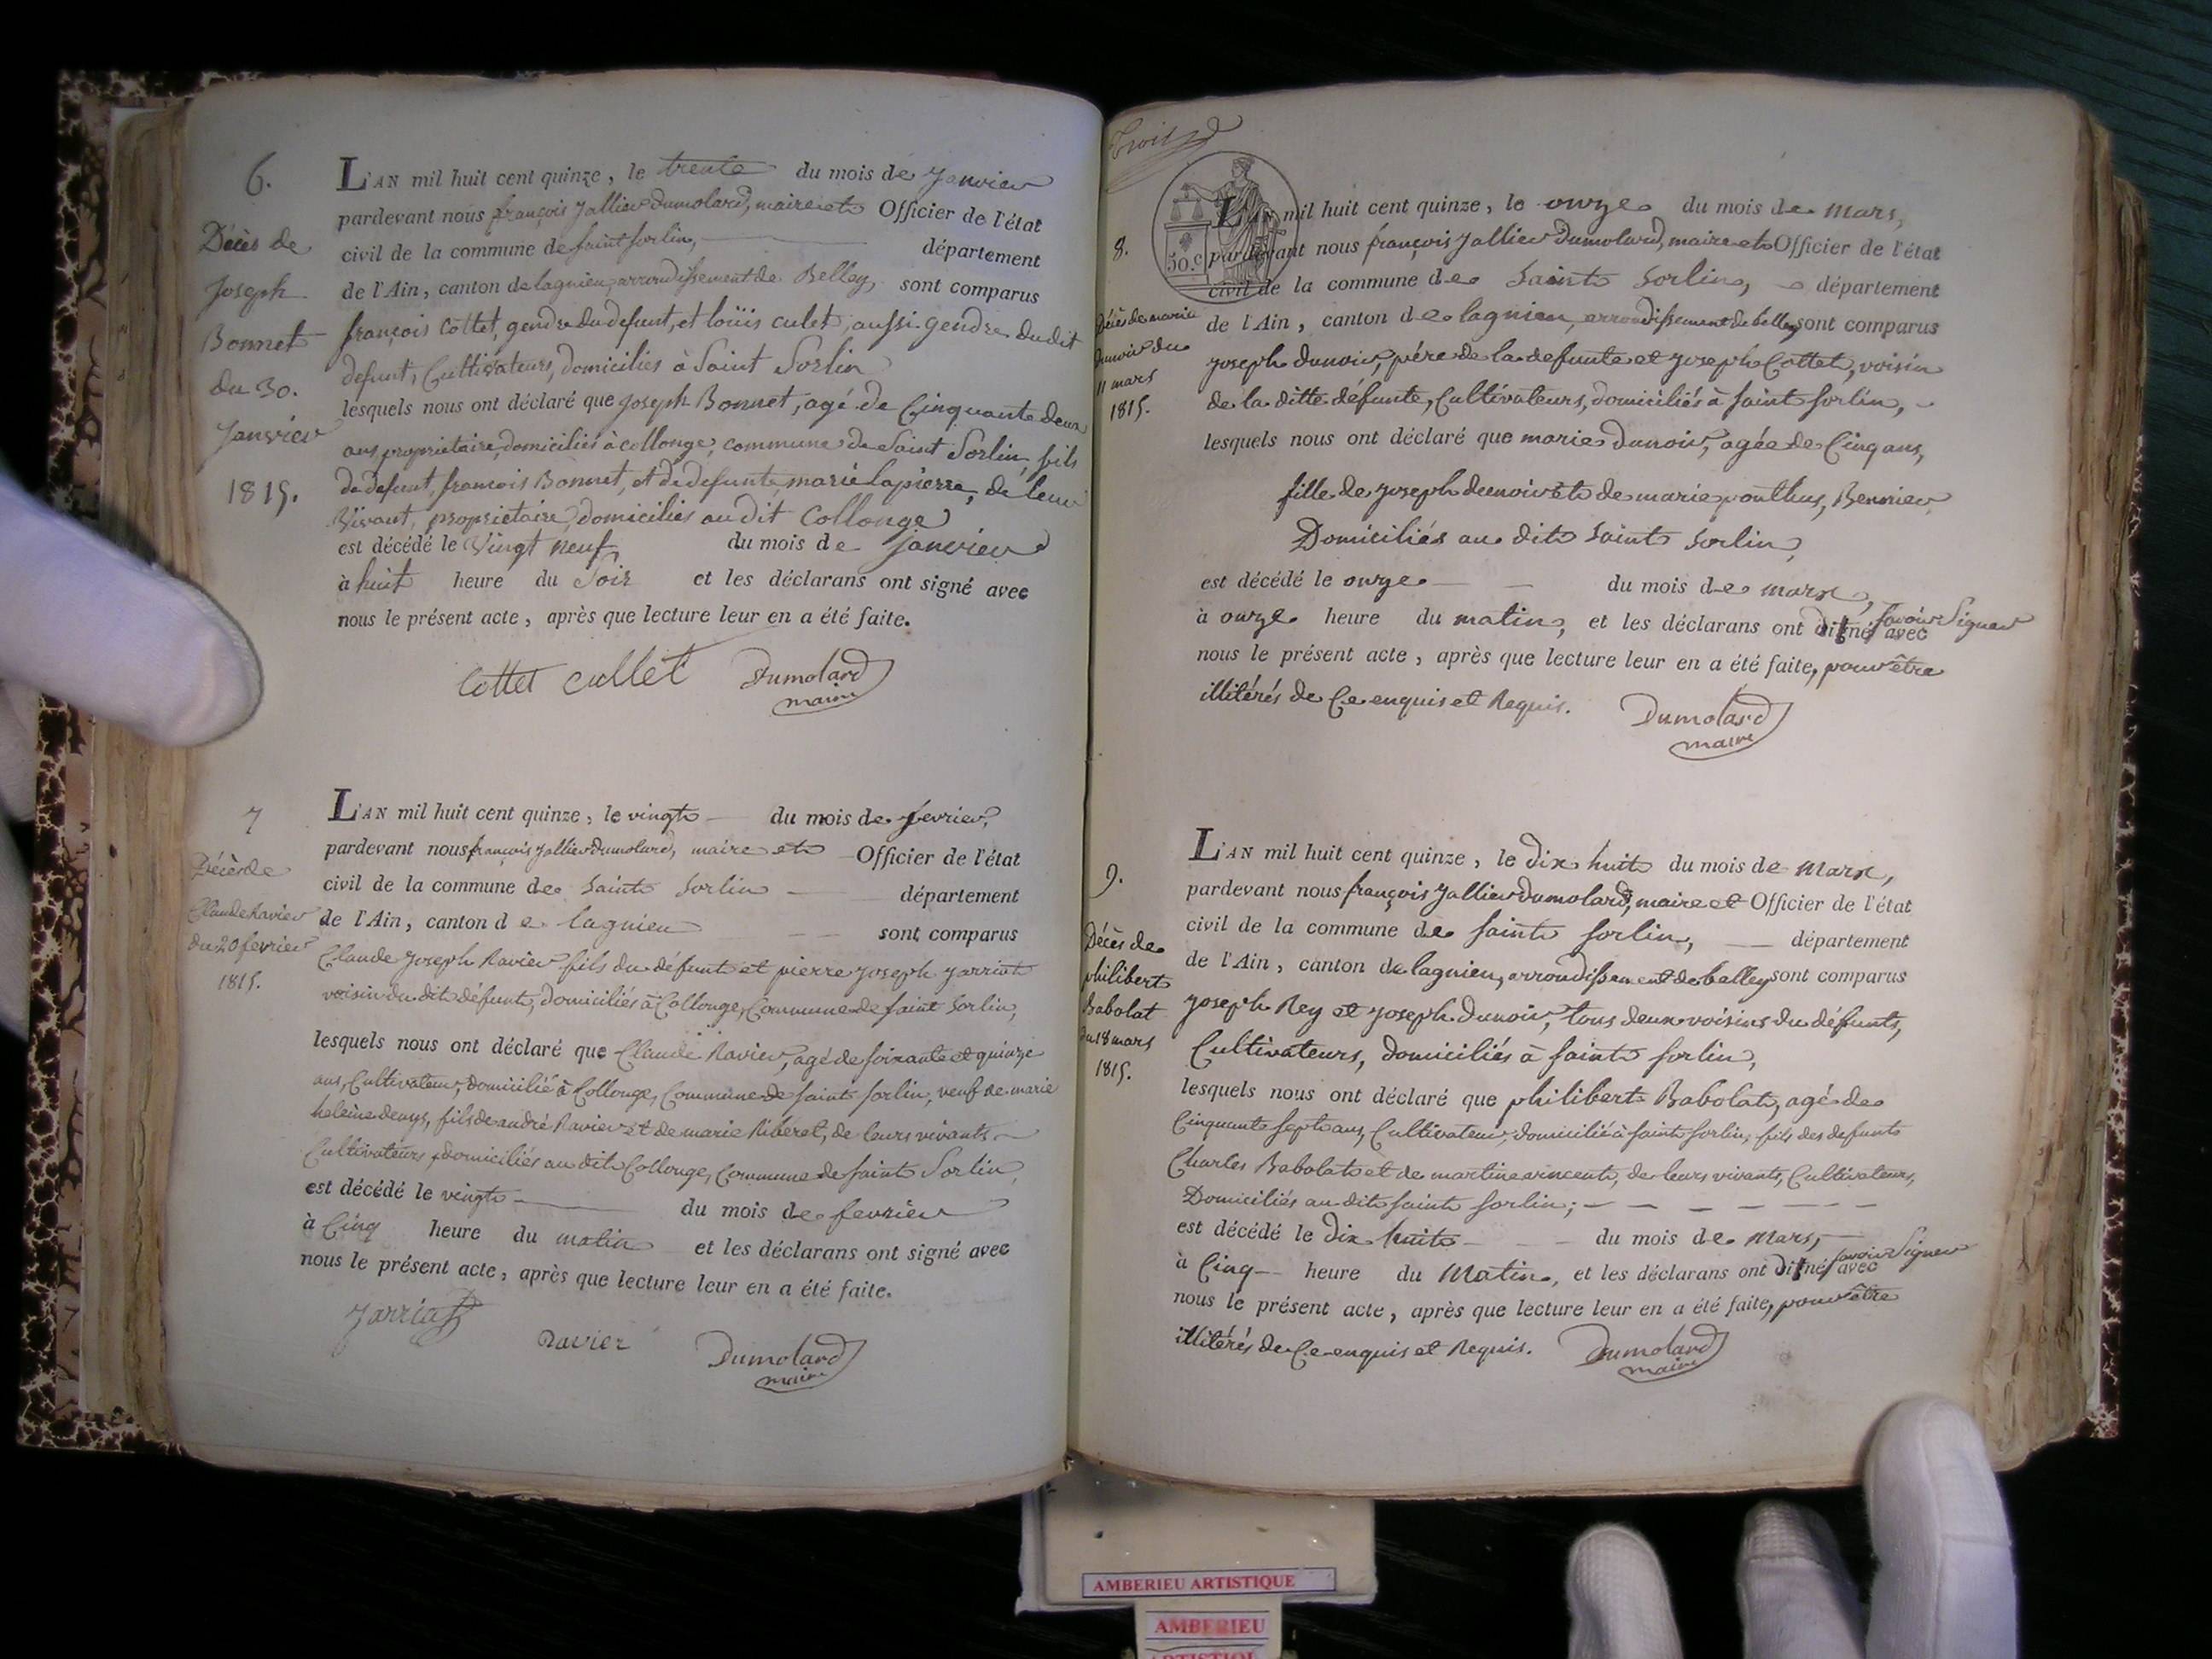 6.
Décès de
Joseph
Bonnet
du 30.
Janvier
1815.
L'AN mil huit cent quinze, le trente du mois de Janvier
pardevant nous françois Jallier Dumolard, maire et Officier de l'état
civil de la commune de saint sorlin, département
de l'Ain, canton de lagnieu, arrondissement de Belley, sont comparus
françois Cottet, gendre du defunt, et loüis culet, aussi gendre du dit
defunt, Cultivateurs, domiciliés à Saint Sorlin
lesquels nous ont déclaré que joseph Bonnet, agé de Cinquante deux
ans propriétaire, domiciliés à collonge, commune de Saint Sorlin, fils
de defunt, francois Bonnet, et de defunte marie lapierre, de leur
Vivant, propriétaire, domiciliés au dit Collonge
est décédé le Vingt neuf, du mois de janvier
à huit heure du Soir et les déclarans ont signé avec
nous le présent acte, après que lecture leur en a été faite.
Cottet cullet Dumolard
maire
7
Décès de
Claude Ravier
du 20 fevrier
1815.
L'AN mil huit cent quinze, le vingt du mois de fevrier,
pardevant nous françois Jallier Dumolard, maire et Officier de l'état
civil de la commune de Saint Sorlin département
de l'Ain, canton de lagnieu sont comparus
Claude Joseph Ravier fils du défunt et pierre joseph jarriat
voisin du dit défunt, domiciliés à Collonge, Commune de saint Sorlin,
lesquels nous ont déclaré que Claude Ravier, agé de soixante et quinze
ans, Cultivateur, domicilié à Collonge, Commune de saint sorlin, veuf de marie
heleine denys, fils de andré Ravier et de marie Riberet, de leurs vivants
Cultivateurs, domiciliés au dit Collonge, Commune de saint Sorlin,
est décédé le vingt du mois de fevrier
à Cinq heure du matin et les déclarans ont signé avec
nous le présent acte, après que lecture leur en a été faite.
Jarriat
Ravier Dumolard
maire
Trois
50.c
8.
Décès de marie
Dunoir du
11 mars
1815.
L'AN mil huit cent quinze, le onze du mois de mars,
pardevant nous françois Jallier Dumolard, maire et Officier de l'état
civil de la commune de Saint Sorlin, département
de l'Ain, canton de lagnieu, arrondissement de belley sont comparus
joseph dunoir, père de la defunte et joseph Cottet, voisin
de la ditte défunte, Cultivateurs, domiciliés à saint sorlin,
lesquels nous ont déclaré que marie dunoir, agée de Cinq ans,
fille de joseph dunoir et de marie ponthus,
Domiciliés au dit Saint Sorlin,
est décédé le onze du mois de mars,
à onze heure du matin, et les déclarans ont dit né savoir Signer avec
nous le présent acte, après que lecture leur en a été faite, pour être
illitérés de Ce enquis et Requis. Dumolard
maire
9.
Décès de
philibert
Babolat
du 18 mars
1815.
L'AN mil huit cent quinze, le dix huit du mois de Mars,
pardevant nous françois Jallier Dumolard, maire et Officier de l'état
civil de la commune de saint sorlin, département
de l'Ain, canton de lagnieu, arrondissement de belley sont comparus
joseph Rey et joseph dunoir, tous deux voisins du défunt,
Cultivateurs, domiciliés à saint sorlin,
lesquels nous ont déclaré que philibert Babolat, agé de
Cinquante sept ans, Cultivateur, domicilié à saint sorlin, fils des defunts
Charles Babolat et de martine vincent, de leurs vivants, Cultivateurs,
Domiciliés au dit saint sorlin;
est décédé le dix huit du mois de Mars,
à Cinq heure du Matin, et les déclarans ont dit né savoir Signer avec
nous le présent acte, après que lecture leur en a été faite, pour être
illitérés de Ce enquis et Requis. Dumolard
maire
AMBERIEU ARTISTIQUE
AMBERIEU
ARTISTIQUE